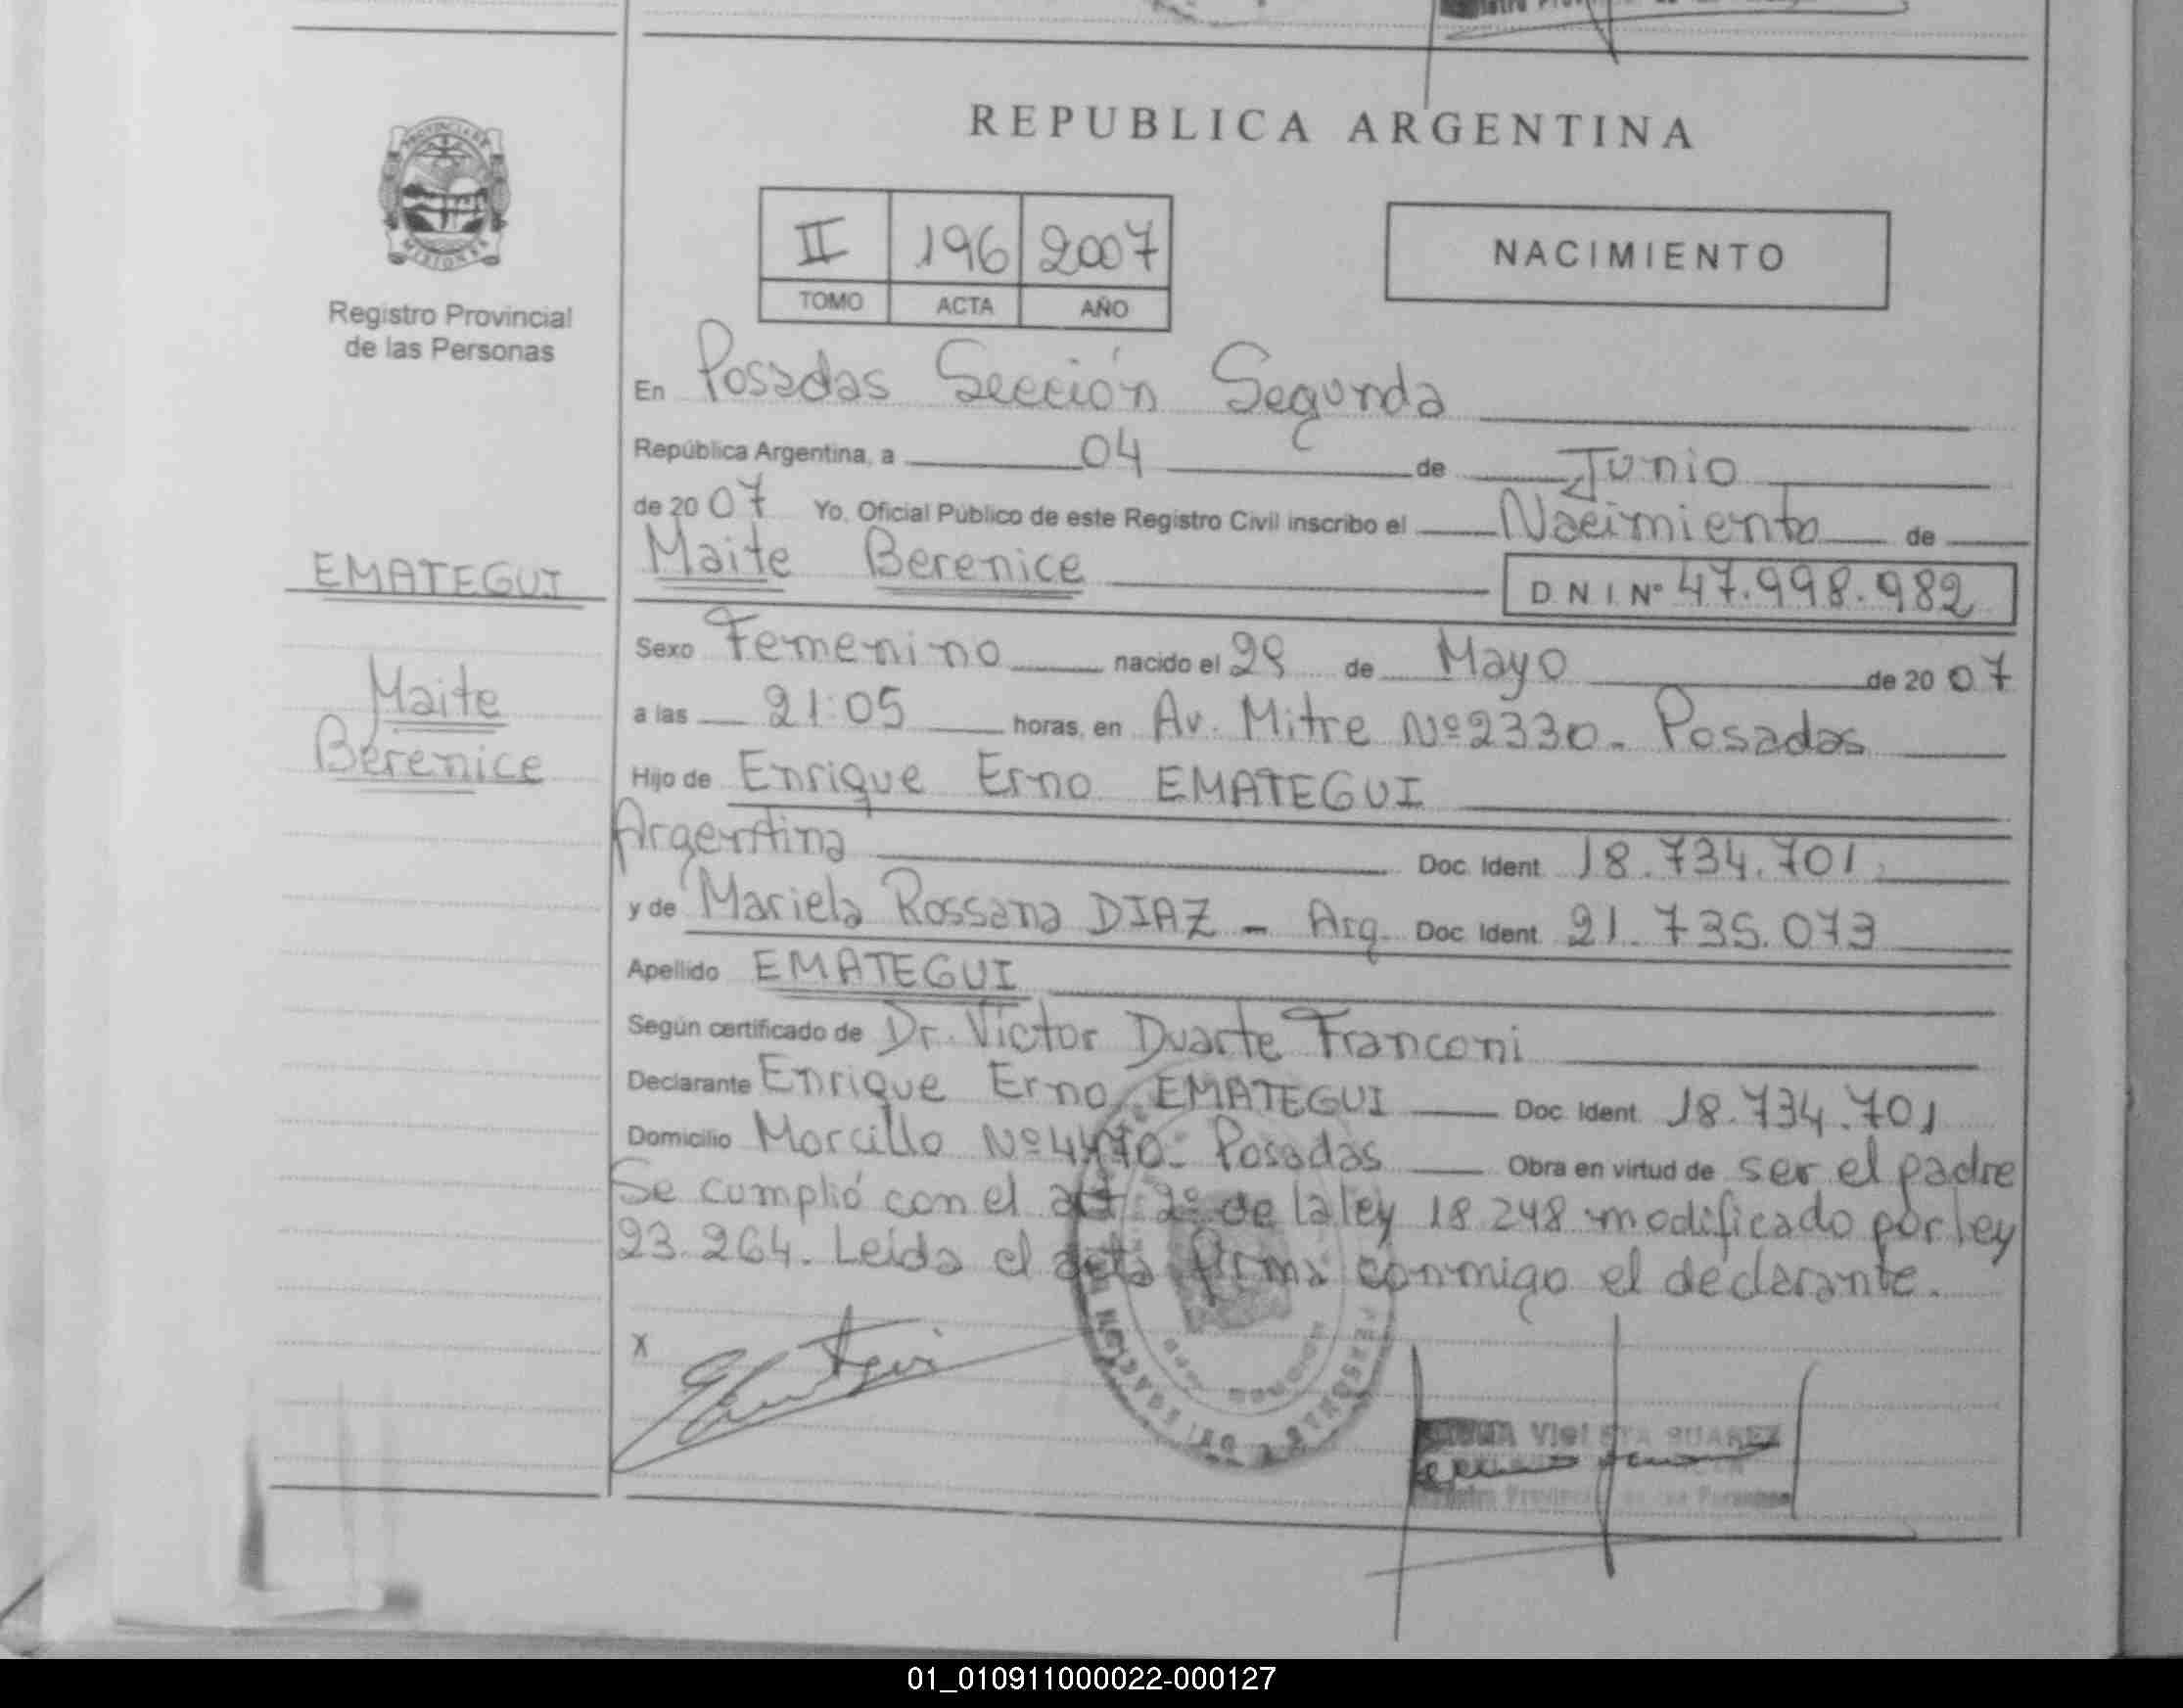 REPUBLICA ARGENTINA
PROVINCIA DE
MISIONES
Registro Provincial
de las Personas
II 196 2007
TOMO ACTA AÑO
NACIMIENTO
En Posadas Sección Segunda
República Argentina, a 04 de Junio
de 2007 Yo, Oficial Público de este Registro Civil inscribo el Nacimiento de
EMATEGUI
Maite Berenice
D N I Nº 47.998.982
Sexo Femenino nacido el 29 de Mayo de 2007
Maite
Berenice
a las 21:05 horas, en Av. Mitre Nº 2330 - Posadas
Hijo de Enrique Erno EMATEGUI
Argentina Doc. Ident. 18.734.701
y de Mariela Rossana DIAZ - Arg. Doc. Ident. 21.735.073
Apellido EMATEGUI
Según certificado de Dr. Victor Duarte Franconi
Declarante Enrique Erno EMATEGUI Doc. Ident. 18.734.701
Domicilio Morcillo Nº Posadas Obra en virtud de ser el padre
Se cumplió con el art. 2º de la ley 18.248 modificado por ley
23.264. Leída el acta firma conmigo el declarante.
X
SUAREZ
01_010911000022-000127